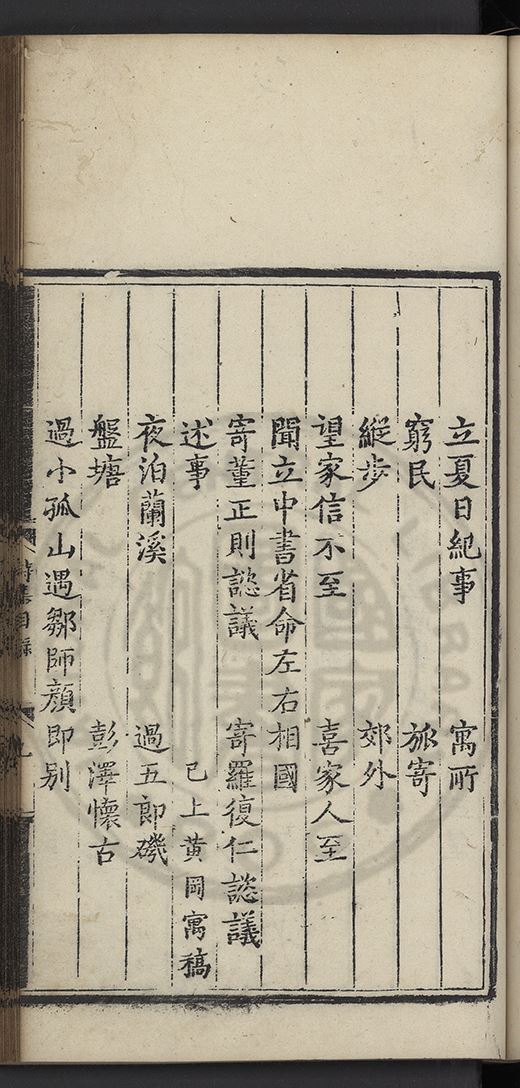 立夏日紀事 寓所
窮民 旅寄
縱步 郊外
望家信不至 喜家人至
聞立中書省命左右相國
寄董正則諮議 寄羅復仁諮議
述事 已上黃岡寓稿
夜泊蘭溪 過五郎磯
盤塘 彭澤懷古
過小孤山遇鄒師顏即别
詩集目錄 九